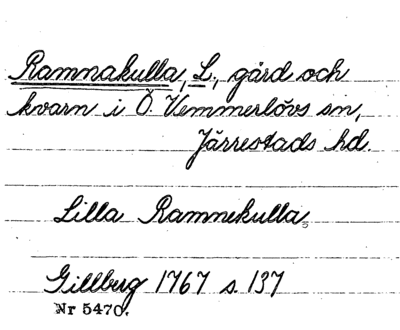 Ramnakulla, L., gård och
kvarn i Ö. Vemmerlövs sn,
Järrestads hd.
Lilla Ramnekulla
Gillberg 1767 s. 137
Nr 5470.